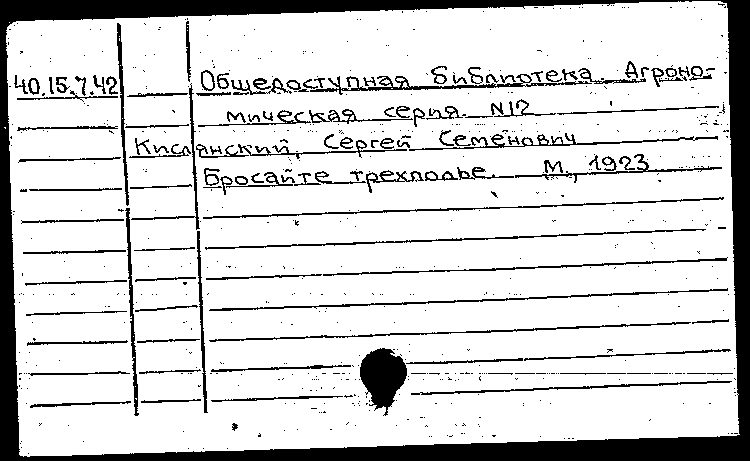 40.15.7.42 Общедоступная библиотека. Агроно-
мическая серия. N12
Кислянский, Сергей Семенович
Бросайте трехполье. М., 1923